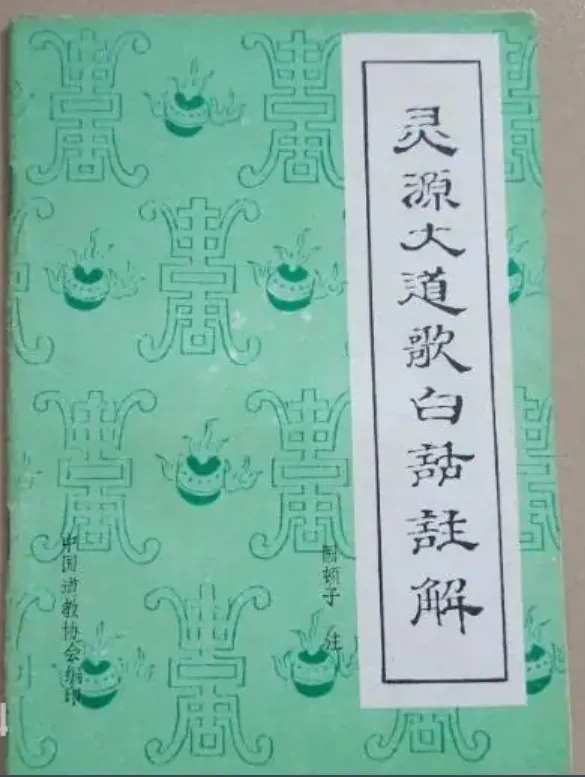 灵源大道歌白話註解
圆顿子 注
中国道教协会编印